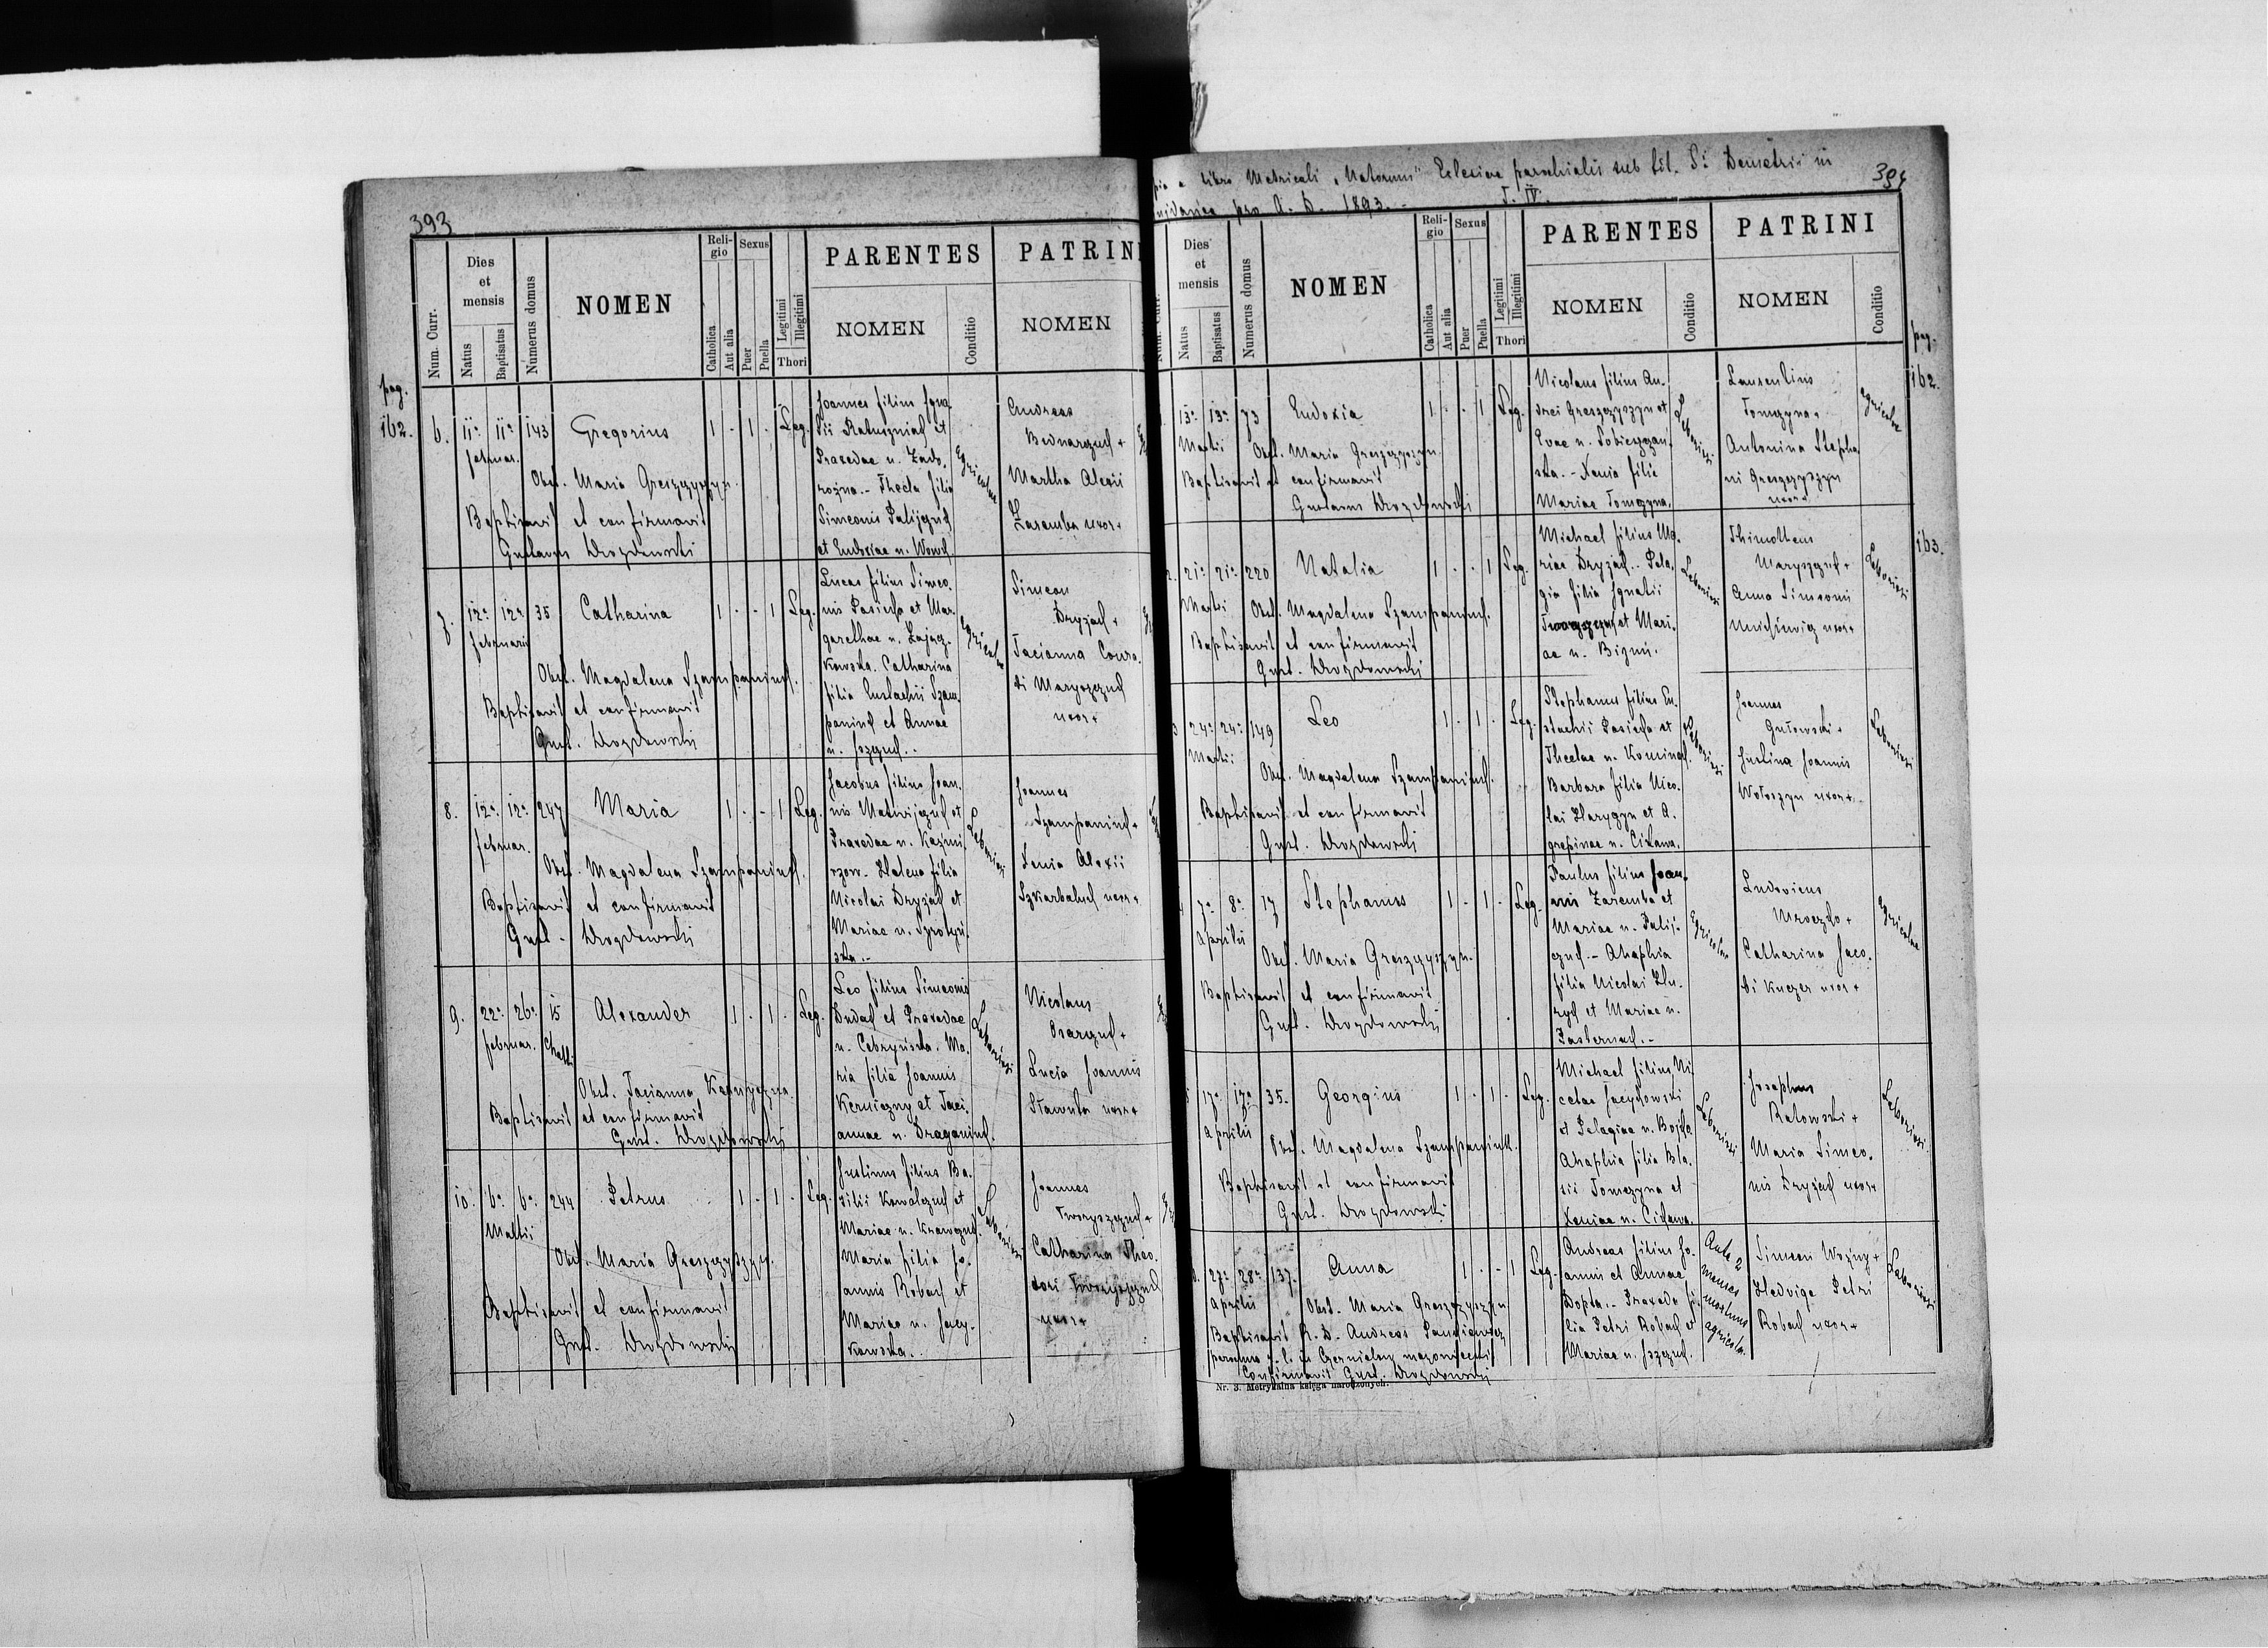 393
Num. Curr.
Dies et mensis
Natus
Baptisatus
Numerus domus
NOMEN
Religio
Catholica
Aut alia
Sexus
Puer
Puella
Legitimi
Illegitimi
Thori
PARENTES
NOMEN
Conditio
PATRINI
NOMEN
pag.
162.
6. 11a 11a 143 Gregorius 1 - 1 . Leg.
februar.
Obst. Maria Greszczyszyn.
Baptisavit et confirmavit
Gustavus Drozdowski
Joannes filius Igna-
tii Ratuszniak et
Praxedae n. Zado-
rozna.- Thecla filia
Simeonis Palijczuk
et Eudoxiae n. Wowk.
Agricolae
Andreas
Bednarczuk +
Martha Alexii
Zaremba uxor +
7. 12a 12a 35 Catharina 1 . - 1 Leg.
februarii
Obst. Magdalena Szampaniuk.
Baptisavit et confirmavit
Gust. Drozdowski
Lucas filius Simeo-
nis Pasieka et Mar-
garethae n. Zajacz-
kowska. Catharina
filia Eustachii Szam-
paniuk et Annae
n. Iszczuk..
Agricolae
Simeon
Dryzak +
Tacianna Conra-
di Maryszczuk
uxor +
8. 12a 12a 247 Maria 1 . - 1 Leg.
februar.
Obst. Magdalena Szampaniuk.
Baptisavit et confirmavit
Gust. Drozdowski
Jacobus filius Joan-
nis Matwijczuk et
Praxedae n. Kazmi-
rzow- Helena filia
Nicolai Dryzak et
Mariae n. Syrotyn-
ska.-
Laboriosi
Joannes
Szampaniuk +
Xenia Alexii
Szkarbaluk uxor +
9. 22a 26a 15 Alexander 1 . 1 . Leg.
februar.
Obst. Tacianna Kerniczna.
Baptisavit et confirmavit
Gust. Drozdowski
Leo filius Simeonis
Dudak et Praxedae
n. Cebrynska. Ma-
ria filia Joannis
Kerniczny et Taci-
annae n. Draganiuk.
Laboriosi
Nicolaus
Osarczuk +
Lucia Joannis
Stawula uxor +
10. 6a 6a 244 Petrus 1 - 1 . Leg.
Martii
Obst. Maria Greszczyszyn.
Baptisavit et confirmavit
Gust. Drozdowski
Justinus filius Ba-
silii Kowalczuk et
Mariae n. Krawczuk.
Maria filia Jo-
annis Robak et
Mariae n. Jacy-
kowska..
Laboriosi
Joannes
Tworyszczuk +
Catharina Theo-
dori Tworyszczuk
uxor +
394
a Libro Metricali „Natorum" Eclesiae parochialis sub tit. S: Demetrii in
pro A. D. 1893.- T. IV.
Num. Curr.
Dies et mensis
Natus
Baptisatus
Numerus domus
NOMEN
Religio
Catholica
Aut alia
Sexus
Puer
Puella
Legitimi
Illegitimi
Thori
PARENTES
NOMEN
Conditio
PATRINI
NOMEN
Conditio
pag.
162.
13a 13a 73 Eudoxia 1 . . 1 Leg.
Martii
Obst. Maria Greszczyszyn.
Baptisavit et confirmavit
Gustavus Drozdowski
Nicolaus filius An-
drei Greszczyszyn et
Evae n. Sobieszczan-
ska.- Xenia filia
Mariae Tomczyna.
Laboriosi
Laurentius
Tomczyna +
Antonina Stepha-
ni Greszczyszyn
uxor +
Agricolae
163.
2. 21a 21a 220 Natalia 1 . . 1 Leg
Martii
Obst. Magdalena Szampaniuk.
Baptisavit et confirmavit
Gust. Drozdowski
Michael filius Ma-
riae Dryzak.- Pela-
gia filia Ignatii
et Mari-
ae n. Bizuń.
Laboriosi
Thimotheus
Maryszczuk +
Anna Simeonis
uxor +
Laboriosi
3 24a 24a 149 Leo 1 . 1 . Leg.
Martii
Obst. Magdalena Szampaniuk.
Baptisavit et confirmavit
Gust. Drozdowski
Stephanus filius Eu-
stachii Pasieka et
Theclae n. Kominak.
Barbara filia Nico-
lai Harygyn et A-
grepinae n. Cikawa.
Laboriosi
Joannes
Gutowski +
Justina Joannis
Wołoszyn uxor +
Laboriosi
7a 8a 17 Stephanus 1 . 1 - Leg.
Aprilis
Obst. Maria Greszczyszyn.
Baptisavit et confirmavit
Gust. Drozdowski
Paulus filius Joan-
nis Zaremba et
Mariae n. Palij-
czuk.- Ahaphia
filia Nicolai Hu-
ryk et Mariae n.
Pasternak.-
Agricolae
Ludovicus
Mroczko +
Catharina Jaco-
bi Kuczer uxor +
Agricolae
17a 17a 35. Georgius 1 . 1 . Leg.
Aprilis
Obst. Magdalena Szampaniuk.
Baptisavit et confirmavit
Gust. Drozdowski
Michael filius Ni-
cetae Jacykowski
et Pelagiae n. Bojko
Ahaphia filia Bla-
sii Tomczyna et
Xeniae n. Cikawa.
Laboriosi
Josephus
Ratowski +
Maria Simeo-
nis Dryzak uxor +
Laboriosi
27a 28a 137. Anna 1 . - 1 Leg.
Aprilis
Obst. Maria Greszczyszyn
Baptisavit R. D. Andreas
Confirmavit Gust. Drozdowski
Andreas filius Jo-
annis et Annae
Dopta.- Praxeda fi-
lia Petri Robak et
Mariae n. Iszczuk.
Ante 2
menses
mortuus
agricola.
Simeon Wozny +
Hedviga Petri
Robak uxor +
Laboriosi
Nr. 3. Metrykalna księga narodzonych.